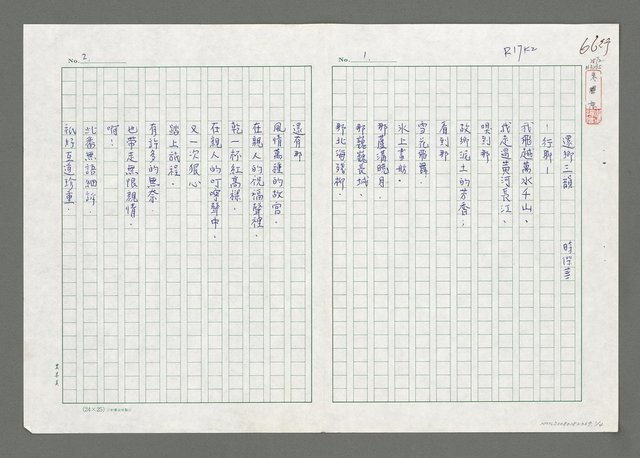 No. 1.
R17K2
還鄉三韻
時傑華
—行鄉—
我飛越萬水千山.
我走過黃河長江.
嗅到那
故鄉泥土的芳香;
看到那
雪花飛舞
冰上芭蕾.
那蘆溝曉月.
那巍巍長城.
那北海殘柳.
No. 2.
還有那
風情萬種的故宮.
在親人的祝福聲裡.
乾一杯紅高樑.
在親人的叮嚀聲中.
又一次狠心
踏上旅程.
有許多的無奈.
也帶走無限親情.
啊!
此番無語細訴.
祇好互道珍重.
(24×25)